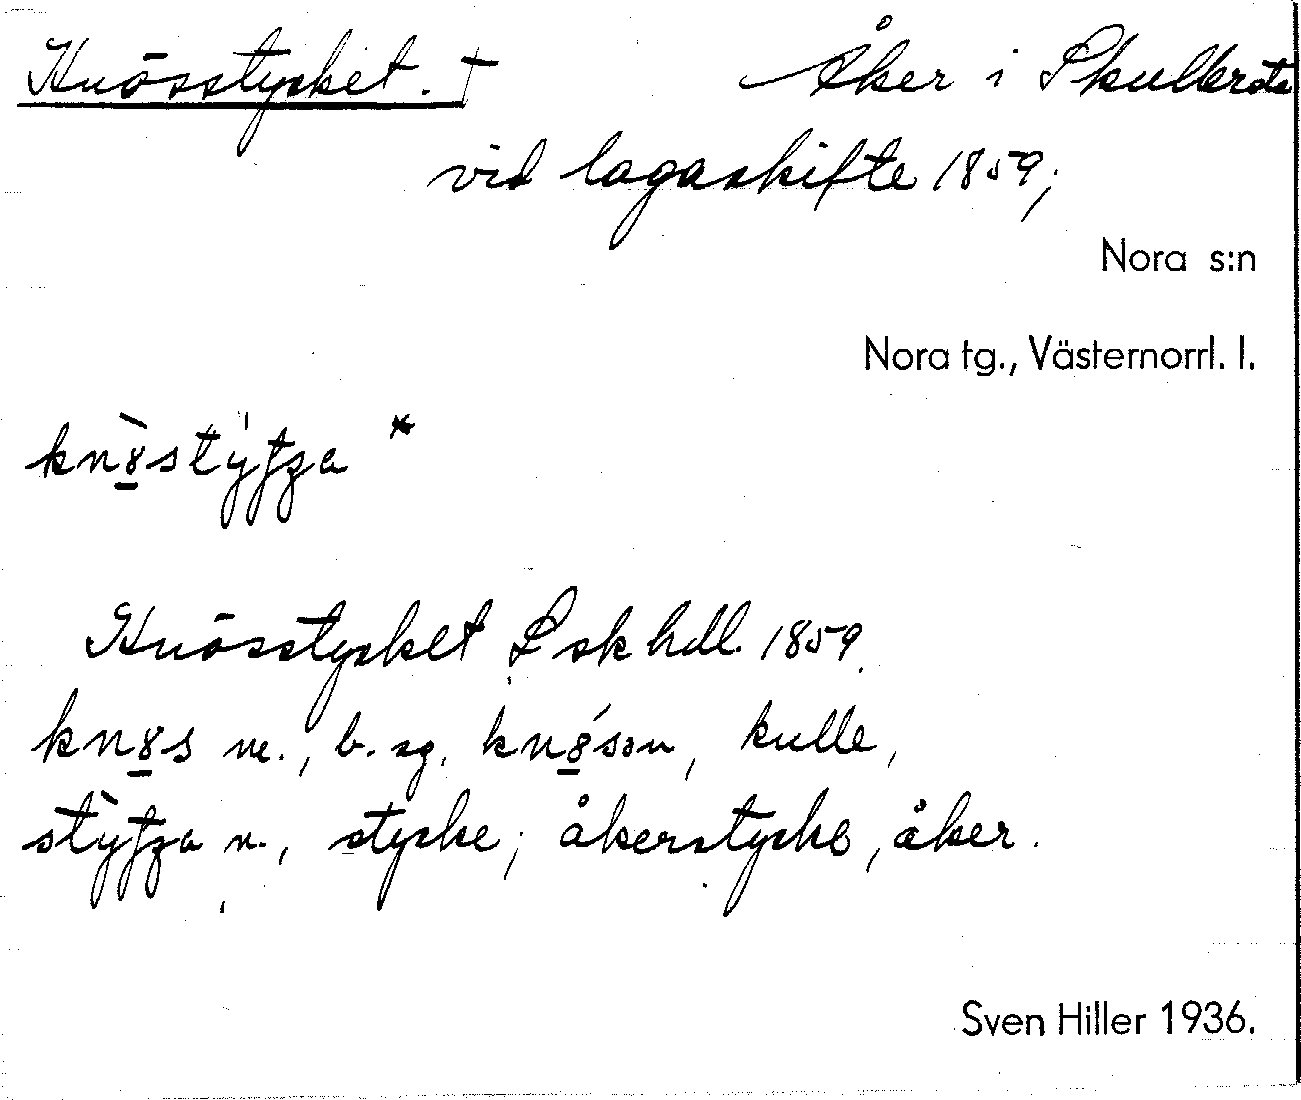 Knösstycket. † Åker i Skullersta
vid lagaskifte 1859;
Nora s:n
Nora tg., Västernorrl. l.
Knösstycket L sk hdl. 1859.
m., b. sg. kulle,
n., stycke; åkerstycke, åker.
Sven Hiller 1936.